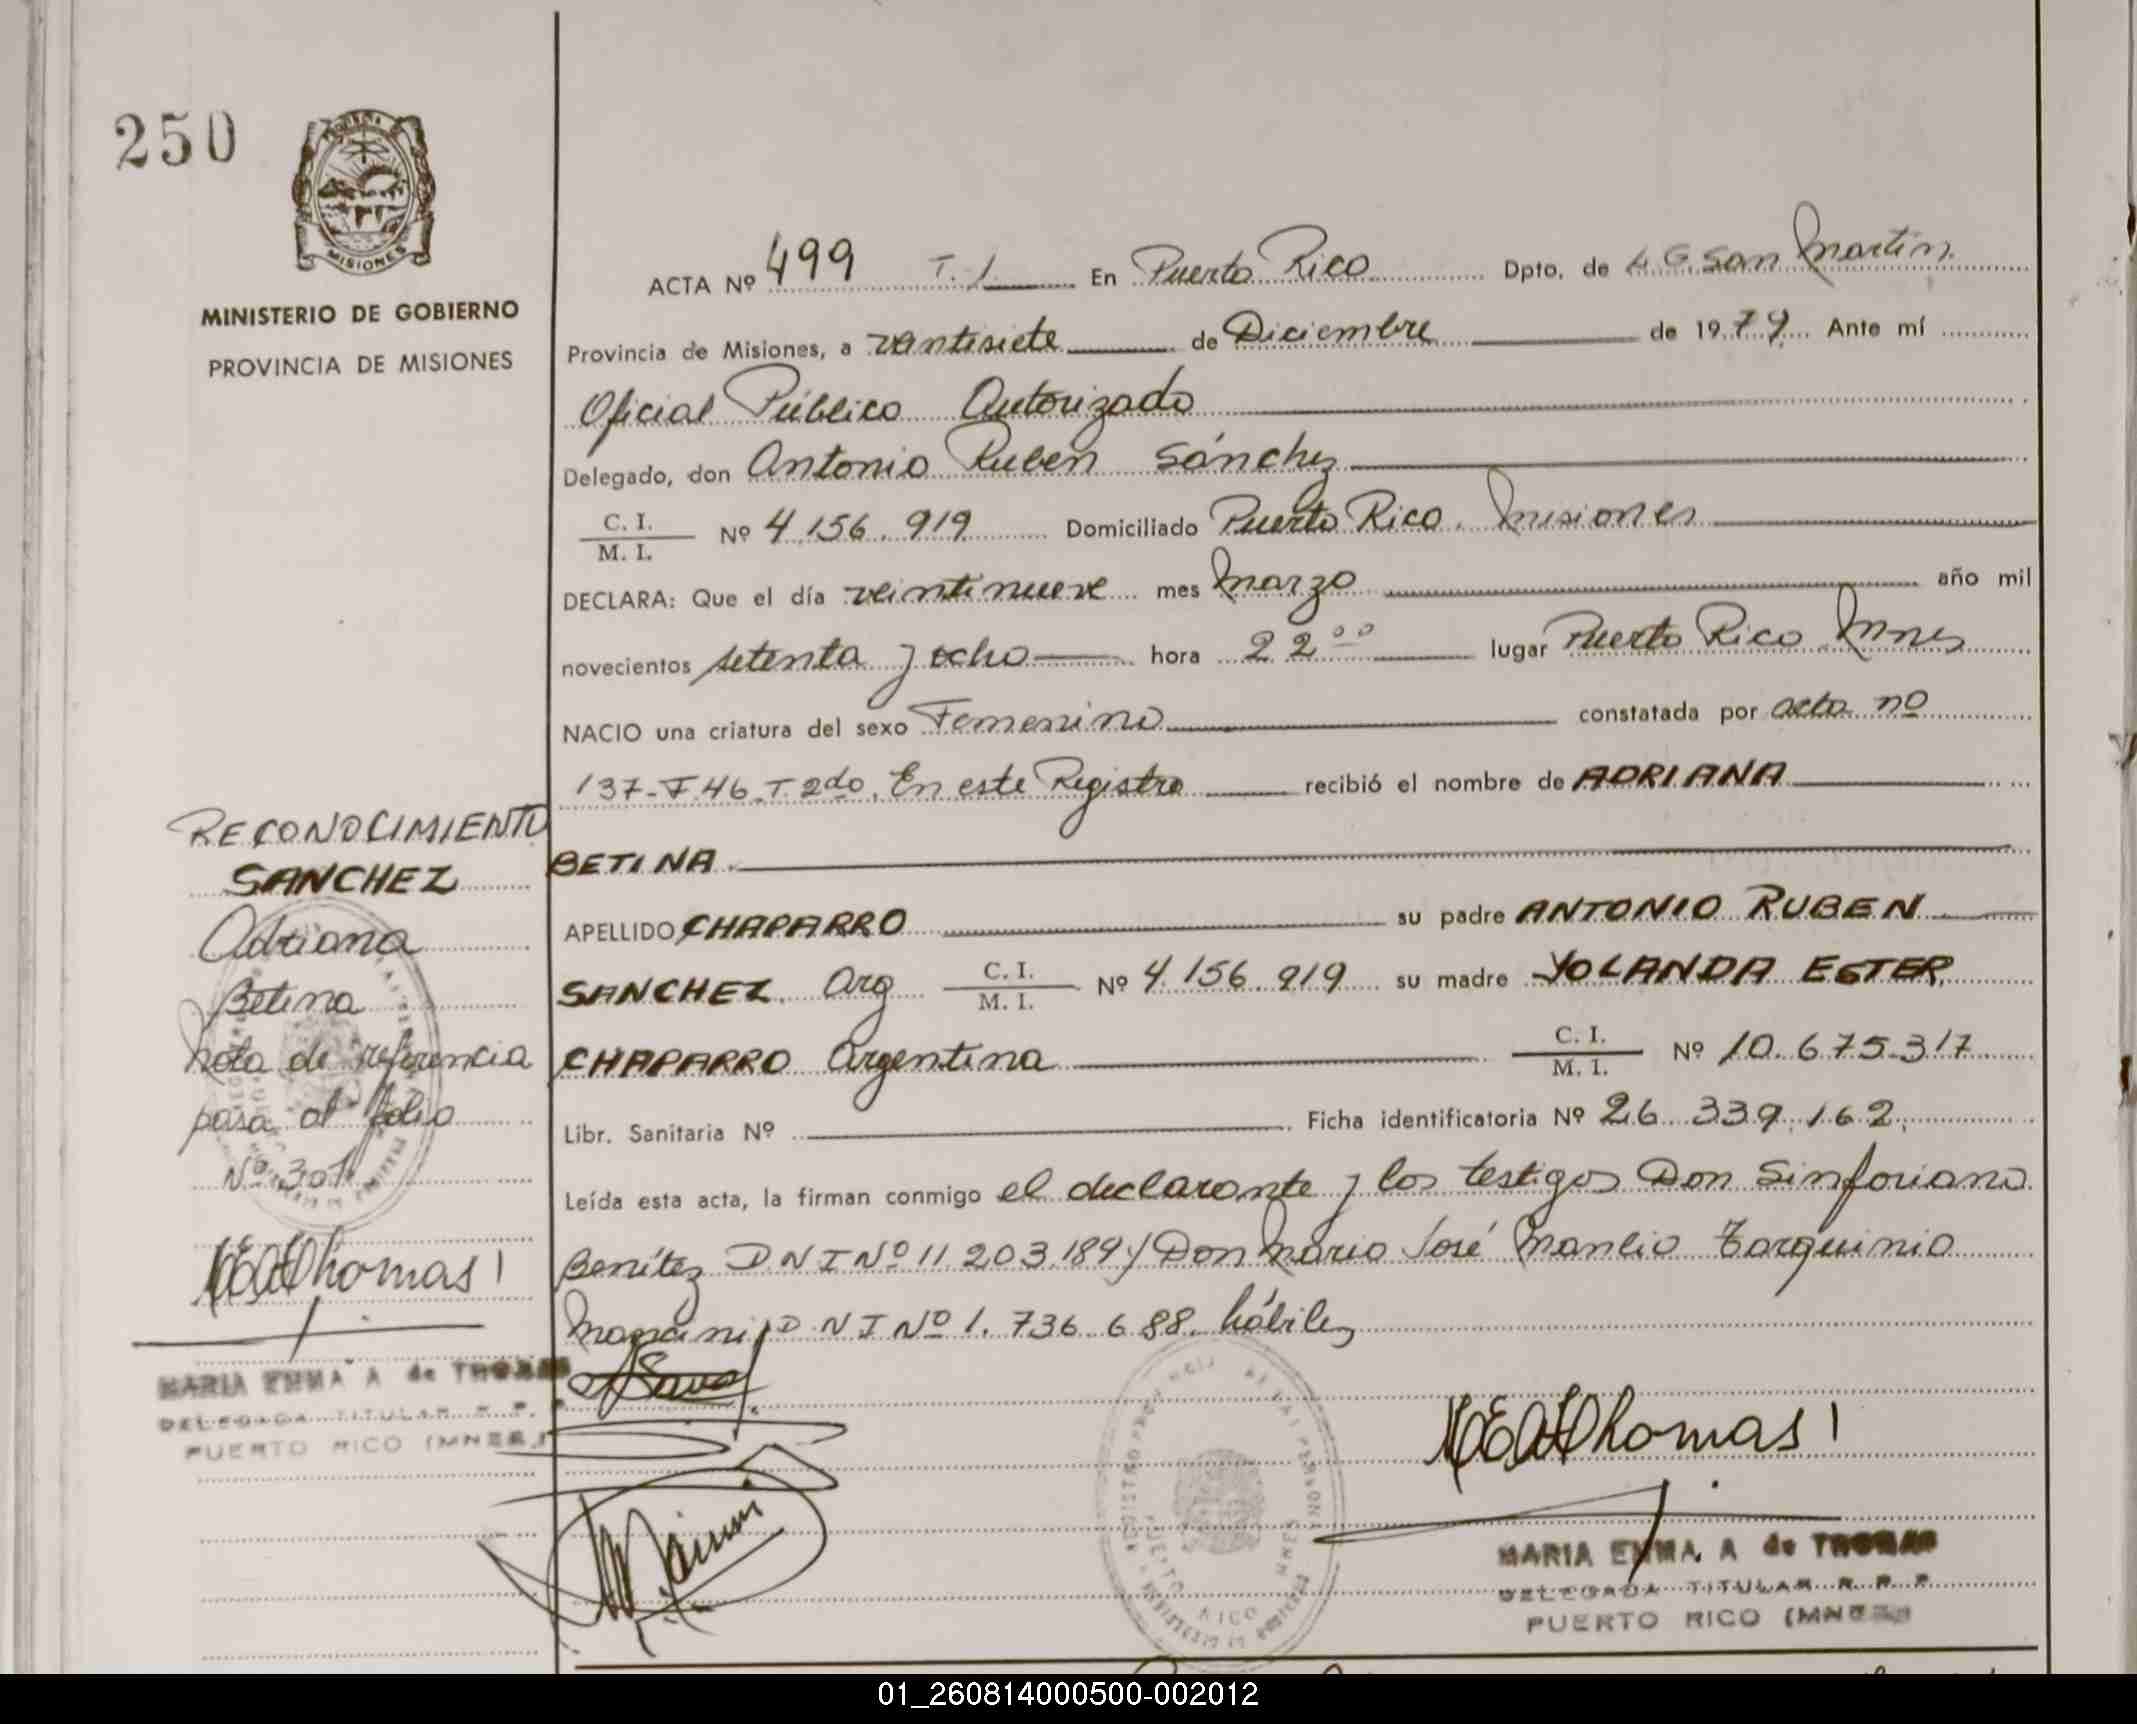 250
MISIONES
MINISTERIO DE GOBIERNO
PROVINCIA DE MISIONES
ACTA Nº 499 T. I En Puerto Rico Dpto. de L. G. San Martín
Provincia de Misiones, a ventisiete de Diciembre de 1979. Ante mí
Oficial Público Autorizado
Delegado, don Antonio Ruben Sánchez
C. I.
M. I. Nº 4.156.919 Domiciliado Puerto Rico. Misiones
DECLARA: Que el día veintinueve mes Marzo año mil
novecientos setenta y ocho hora 22 00 lugar Puerto Rico Mnes
NACIO una criatura del sexo Femenino constatada por acta nº
137-F.46-T 2do. En este Registro recibió el nombre de ADRIANA
BETINA
APELLIDO CHAPARRO su padre ANTONIO RUBEN
SANCHEZ Arg C. I.
M. I. Nº 4.156.919 su madre YOLANDA ESTER
CHAPARRO Argentina C. I.
M. I. Nº 10.675.317
Libr. Sanitaria Nº Ficha identificatoria Nº 26.339.162
Leída esta acta, la firman conmigo el declarante y los testigos Don Sinforiano
Benítez D N I Nº 11.203.189 y Don Mario José Manlio Tarquinio
Mancini D N I Nº 1.736.688. hábiles
RECONOCIMIENTO
SANCHEZ
Adriana
Betina
Nota de referencia
pasa al folio
Nº 301
MEAdThomas
MARIA EMMA A de THOMAS
DELEGADA TITULAR R. P.
PUERTO RICO (MNES.)
MEAdThomas
MARIA EMMA A de THOMAS
DELEGADA TITULAR R. P. P.
PUERTO RICO (MNES)
PUERTO RICO
01_260814000500-002012